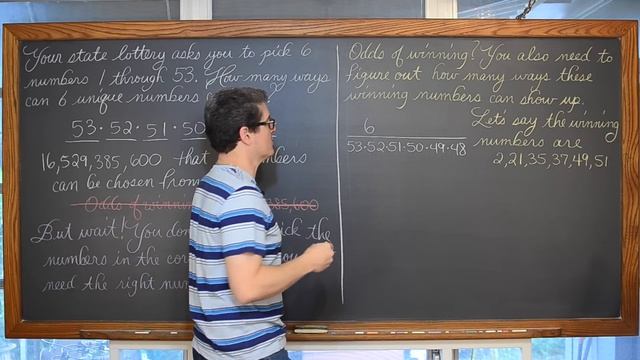 Your state lottery asks you to pick 6
numbers 1 through 53. How many ways
can 6 unique numbers
53 · 52 · 51 · 50
16,529,385,600 that
can be chosen from
Odds of winn 385,600
But wait! You don pick the
numbers in the cor
need the right num
Odds of winning? You also need to
figure out how many ways these
winning numbers can show up.
6
53·52·51·50·49·48
Lets say the winning
numbers are
2,21,35,37,49,51